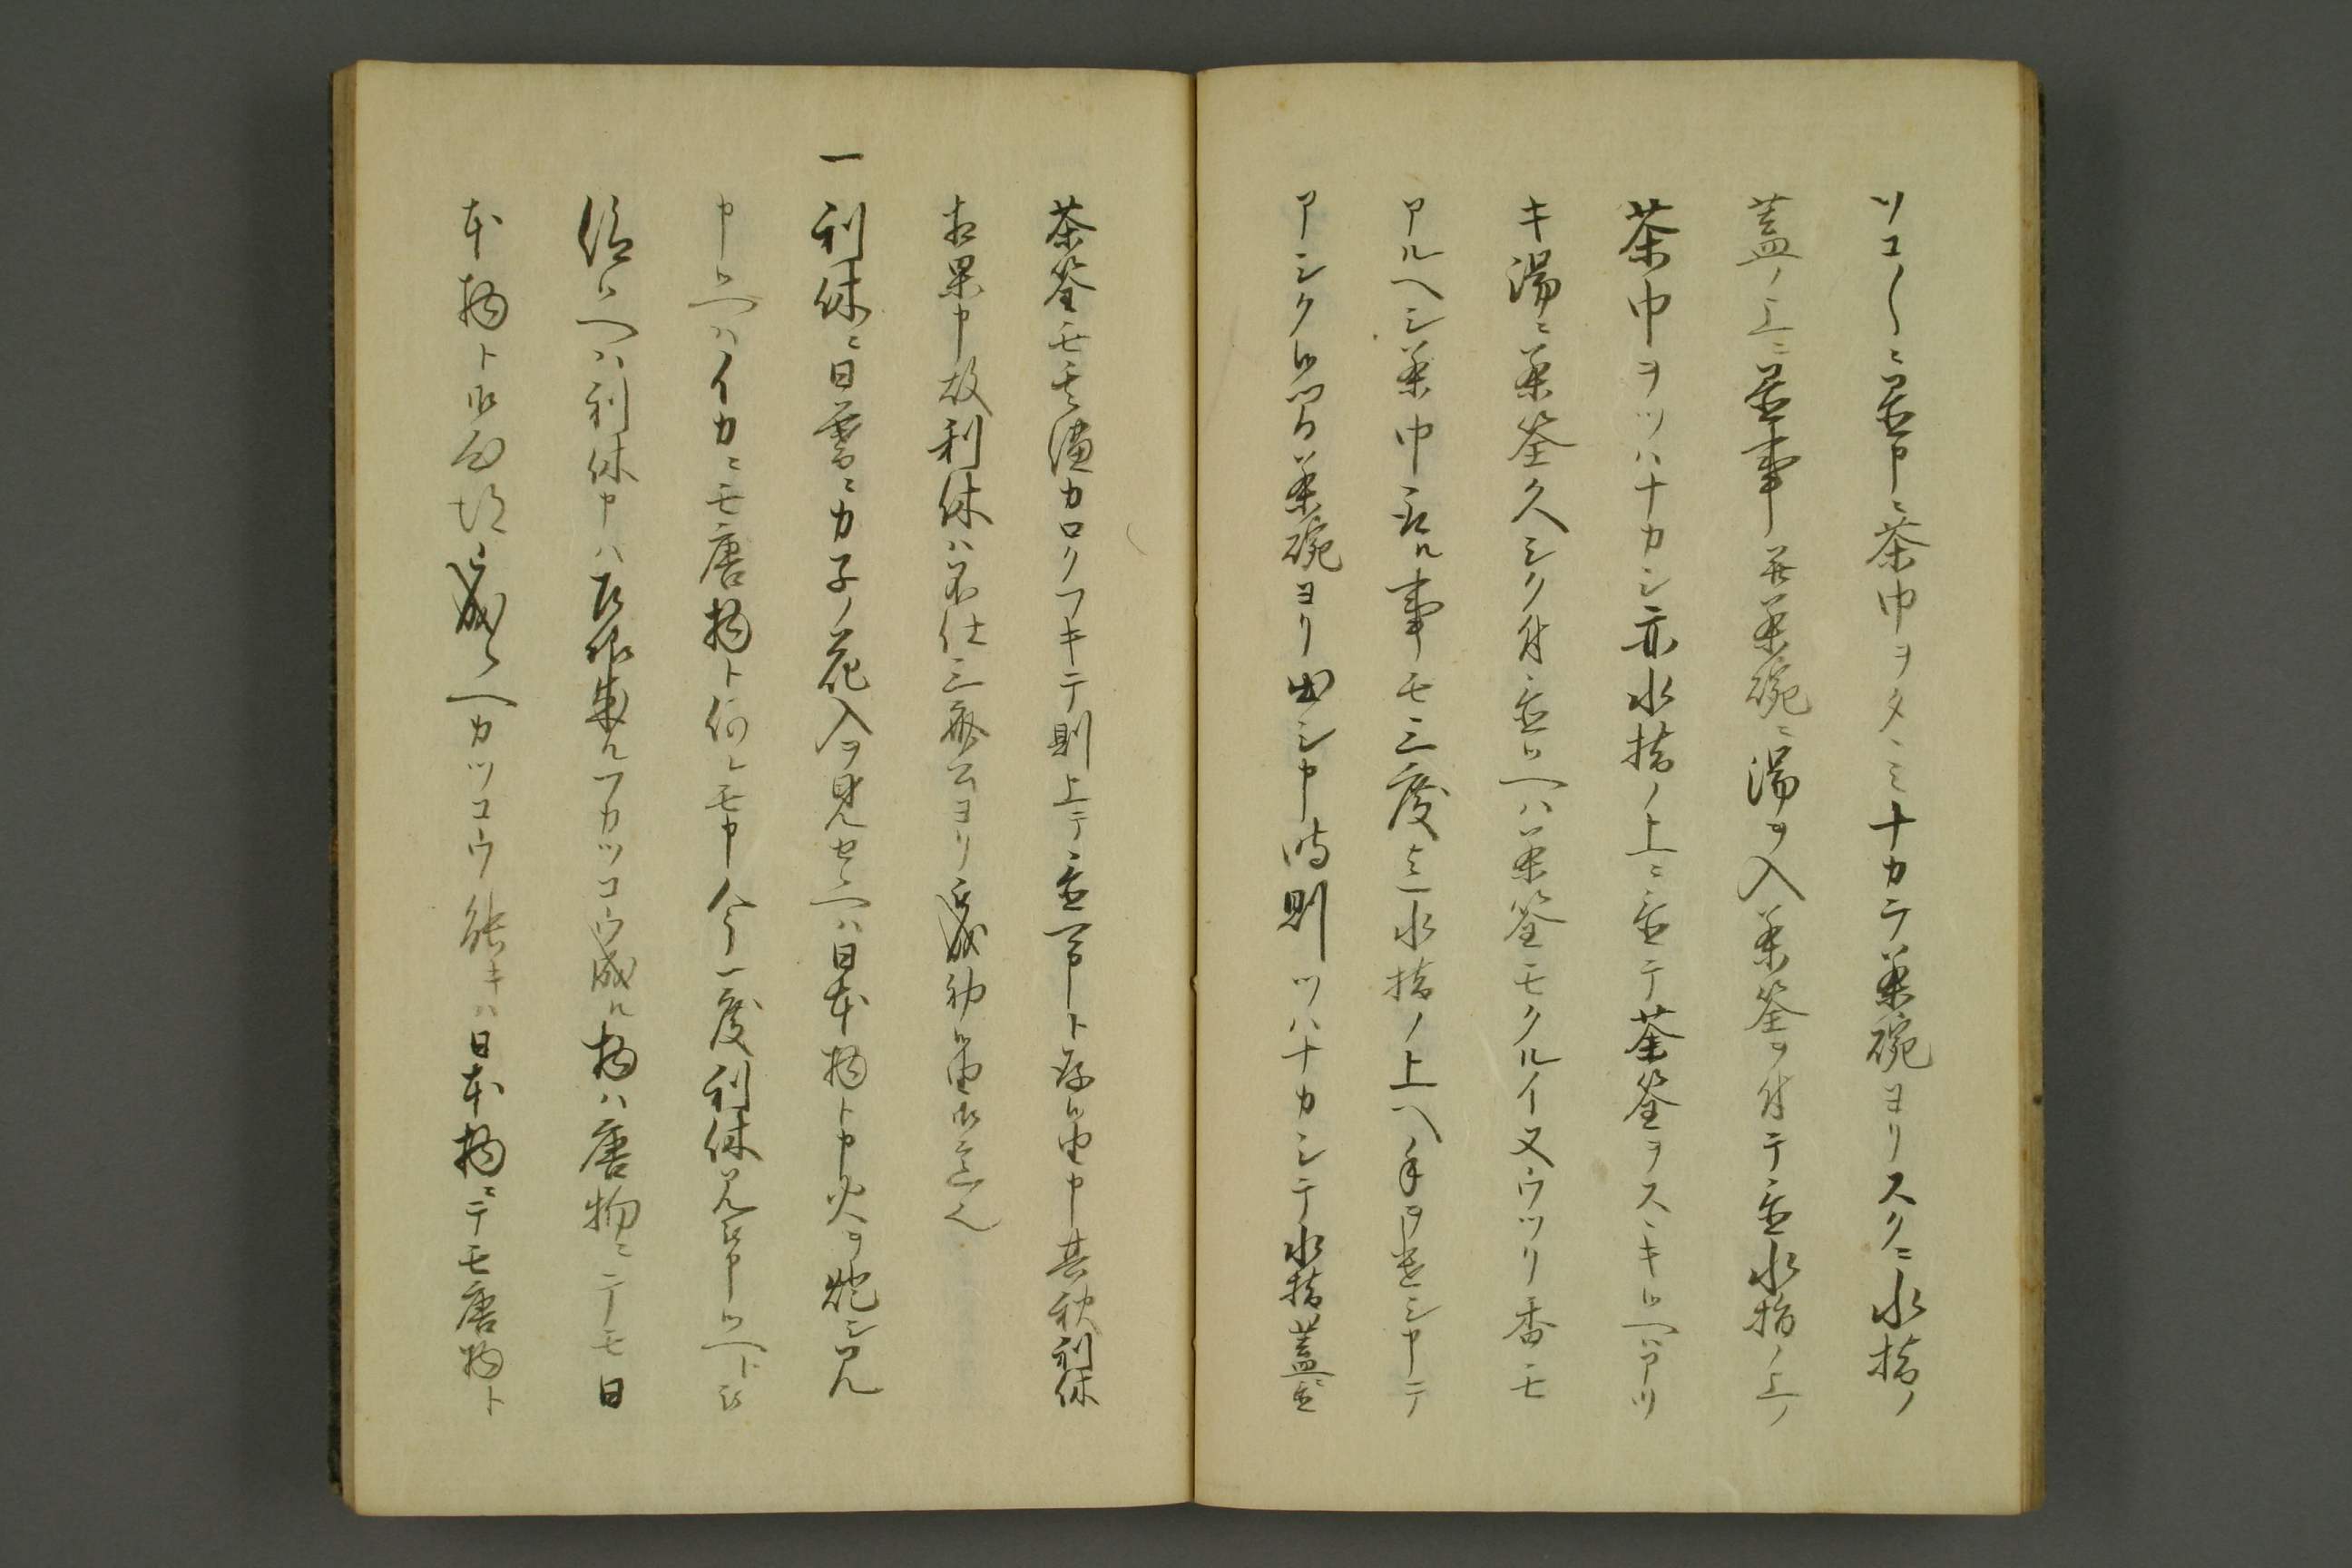 ソコ〳〵ニ置申ニ茶巾ヲタヽミナカラ茶碗ヨリスクニ水指ノ
蓋ノ上ニ置事并茶碗ニ湯ヲ入茶筌ヲ付テ置水指ノ上ノ
茶巾ヲツハナカシ亦水指ノ上ニ置テ茶筌ヲスヽキ候ヘハアツ
キ湯ニ茶筌久シク付置候ヘハ茶筌モクルイ又ウツリ香モ
アルヘシ茶巾取ル事モ三度迄水指ノ上ヘ手ヲ
アシク候間茶碗ヨリ出シ申時則ツハナカシテ水指蓋ニ置
茶筌モ其儘カロクフキテ則上テ置可申ト存候由申其秋利休
相果申故利休ハ不仕三斎公ヨリ成初候由御意也
一利休ニ日暮ニカ子ノ花入ヲ見セ候ヘハ日本物ト申火ヲ燈シ見
申候ヘハイカニモ唐物ト何レモ申今一度利休見可申候ヘト
候ヘハ利休申ハ
本物ト御両所被成候ヘカツコウ能キハ日本物ニテモ唐物ト